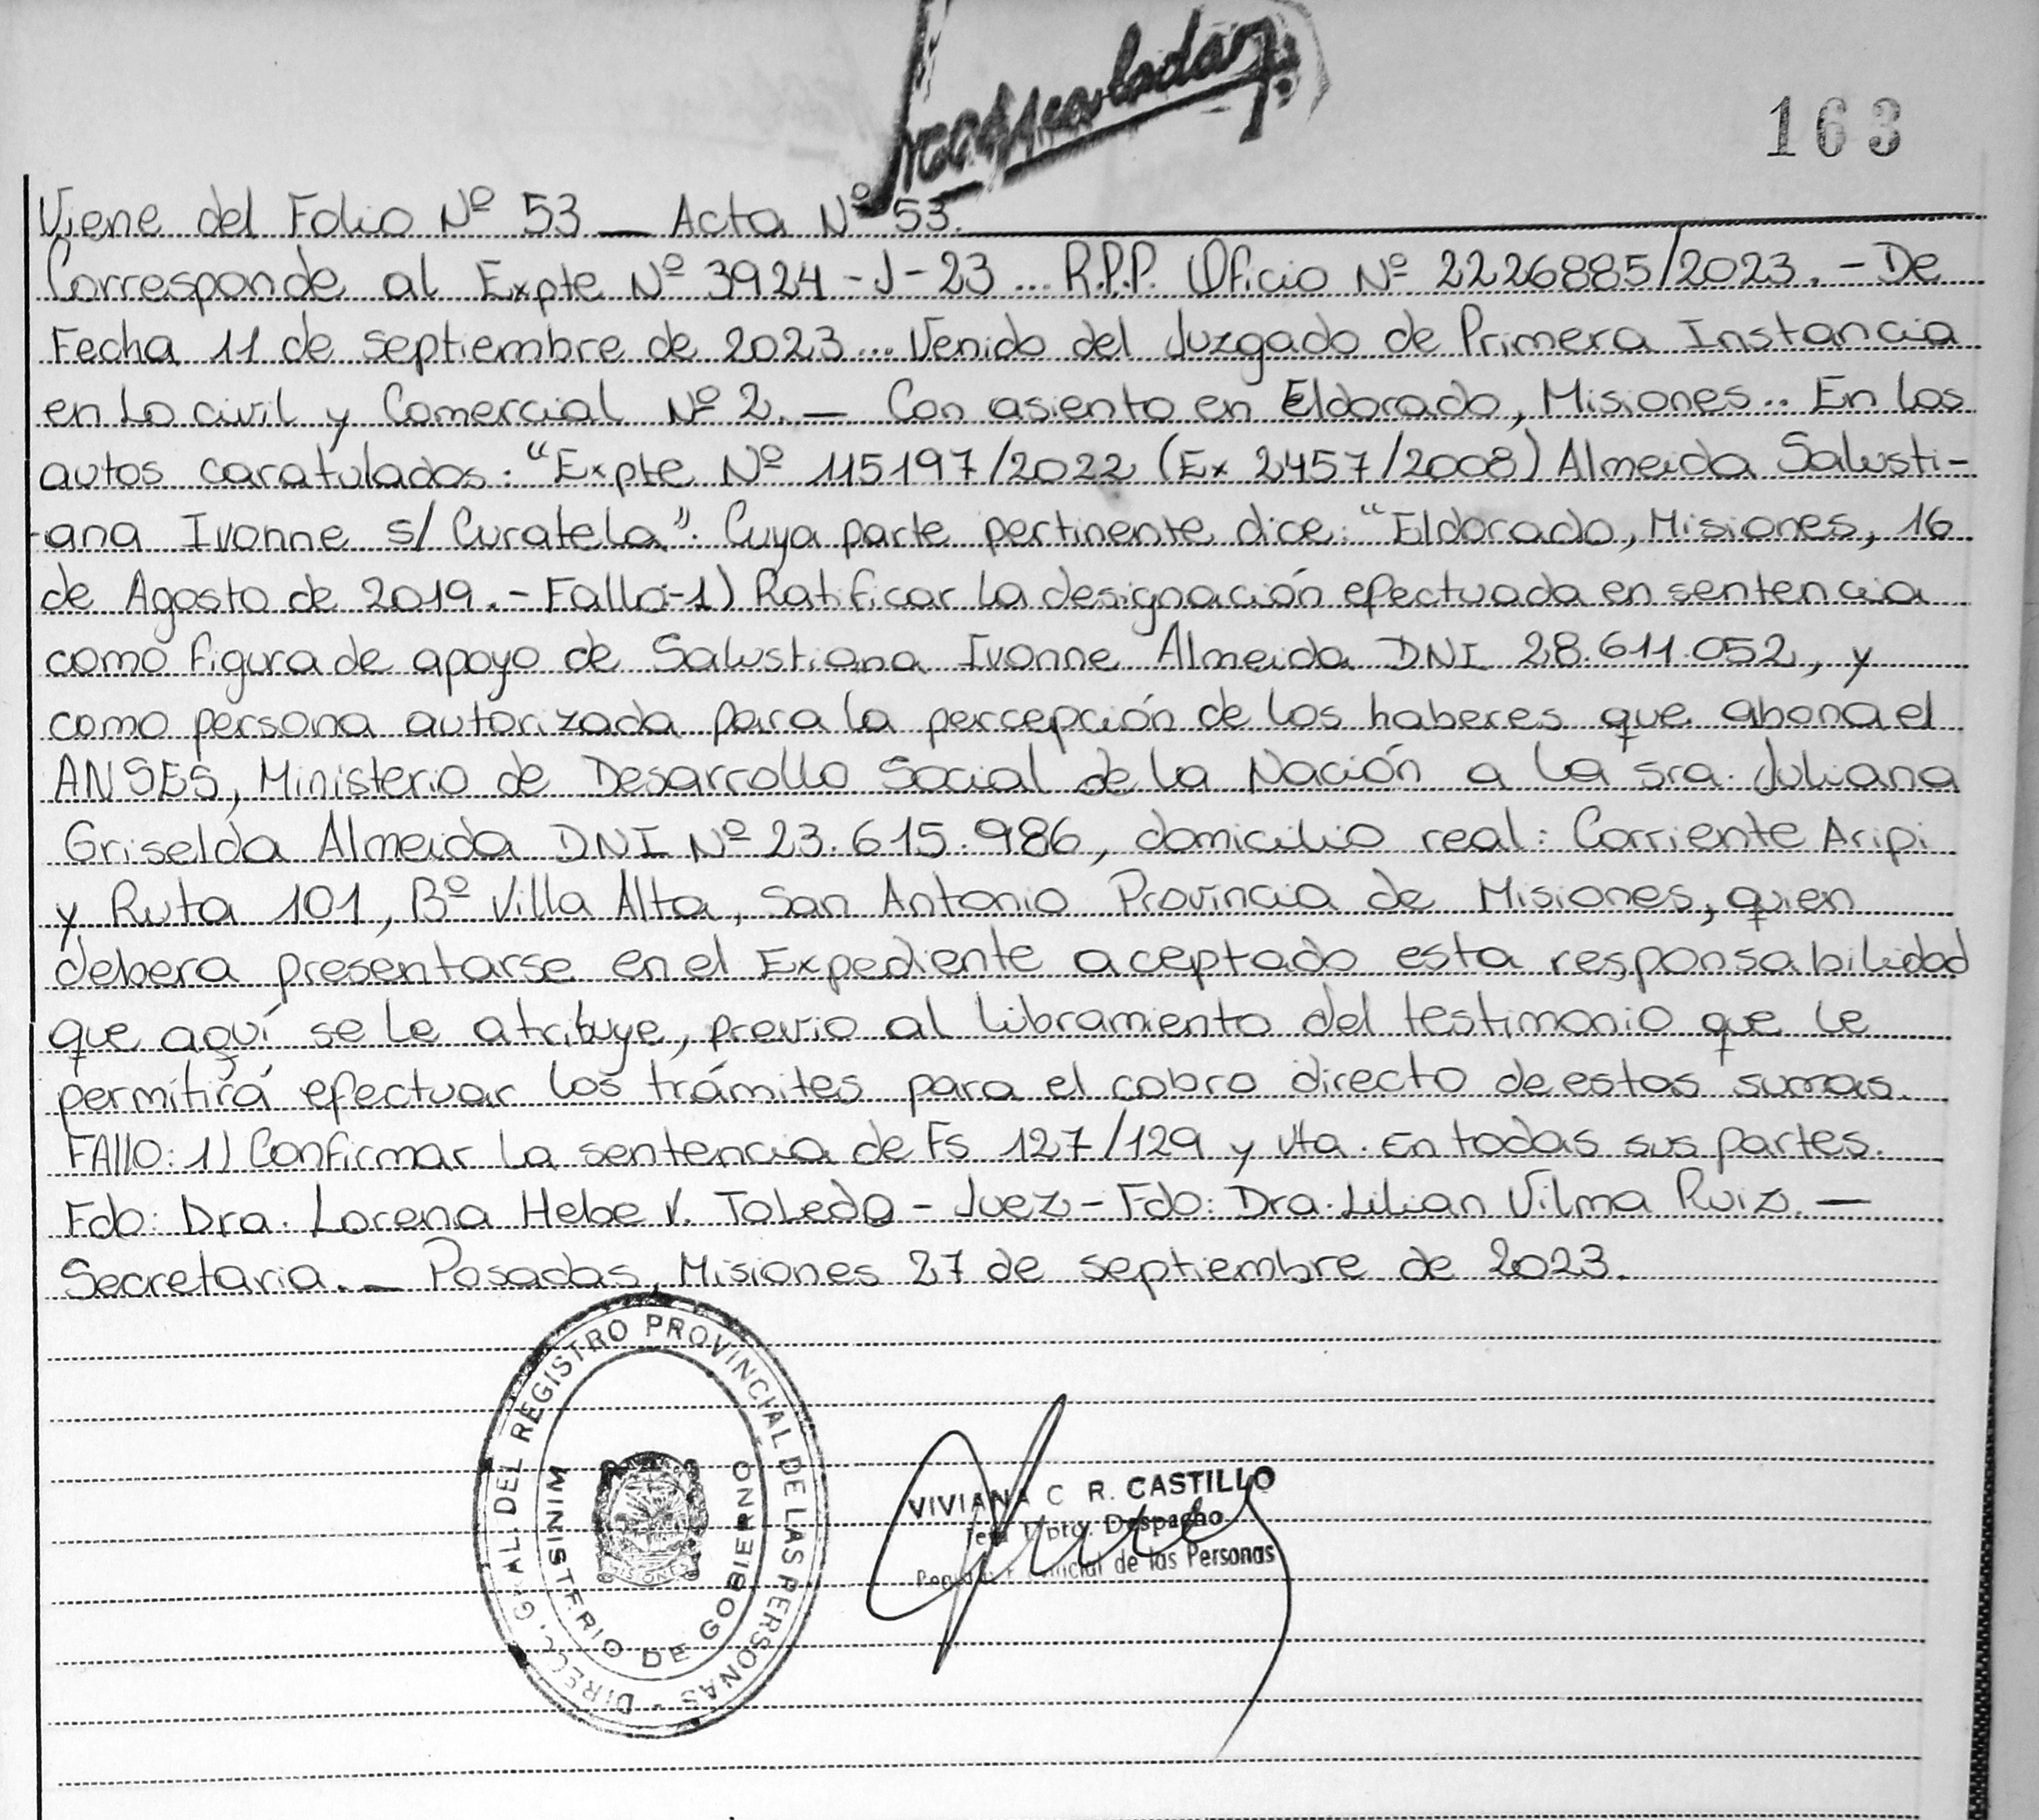 163
Viene del Folio Nº 53 — Acta Nº 53.
Corresponde al Expte Nº 3924-J-23... R.P.P. Oficio Nº 2226885/2023.- De
Fecha 11 de septiembre de 2023... Venido del Juzgado de Primera Instancia
en Lo civil y Comercial Nº 2. — Con asiento en Eldorado, Misiones.. En los
autos caratulados: "Expte Nº 115197/2022 (Ex 2457/2008) Almeida Salusti-
-ana Ivonne s/ Curatela". Cuya parte pertinente dice: "Eldorado, Misiones, 16
de Agosto de 2019.- Fallo:-1) Ratificar la designación efectuada en sentencia
como figura de apoyo de Salustiana Ivonne Almeida DNI 28.611.052, y
como persona autorizada para la percepción de los haberes que abona el
ANSES, Ministerio de Desarrollo Social de la Nación a la sra. Juliana
Griselda Almeida DNI Nº 23.615.986, domicilio real: Corriente Aripi
y Ruta 101, Bº Villa Alta, San Antonio Provincia de Misiones, quien
debera presentarse en el Expediente aceptado esta responsabilidad
que aquí se le atribuye, previo al libramiento del testimonio que le
permitirá efectuar los trámites para el cobro directo de estas sumas.
FALLO: 1) Confirmar la sentencia de Fs 127/129 y vta. En todas sus partes.
Fdo: Dra. Lorena Hebe V. Toledo - Juez - Fdo: Dra. Lilian Vilma Ruiz. —
Secretaria. — Posadas, Misiones 27 de septiembre de 2023.
DIRECC. GRAL. DEL REGISTRO PROVINCIAL DE LAS PERSONAS -
MINISTERIO DE GOBIERNO
VIVIANA C R. CASTILLO
Jefa Dpto. Despacho
de las Personas